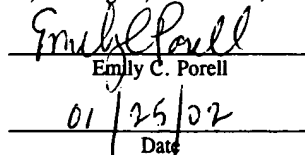 Emily C Porell
Emily C. Porell
01/25/02
Date